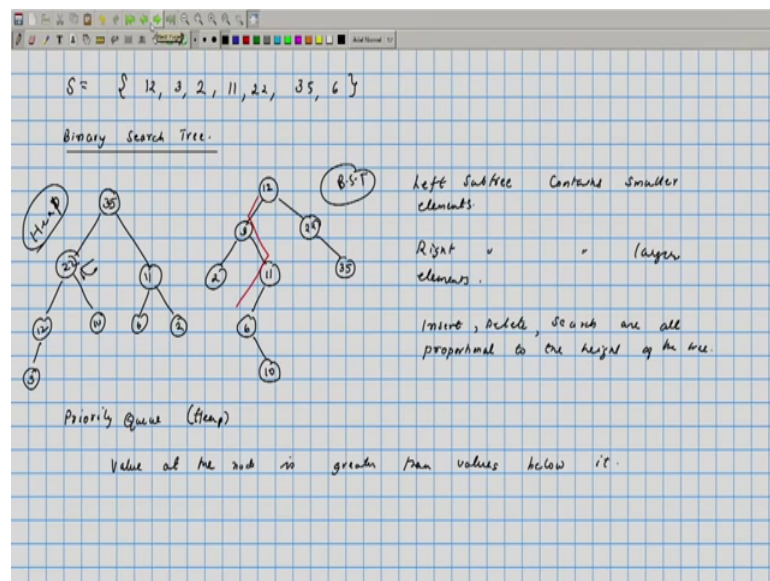 S = { 12, 3, 2, 11, 22, 35, 6 }
Binary Search Tree.
Heap
35
22
11
12
10
6
2
3
B.S.T
12
3
22
2
11
35
6
10
Left Subtree Contains smaller
elements.
Right " " larger
elements.
Insert, Delete, Search are all
proportional to the height of the tree.
Priority Queue (Heap)
Value at the node is greater than values below it.